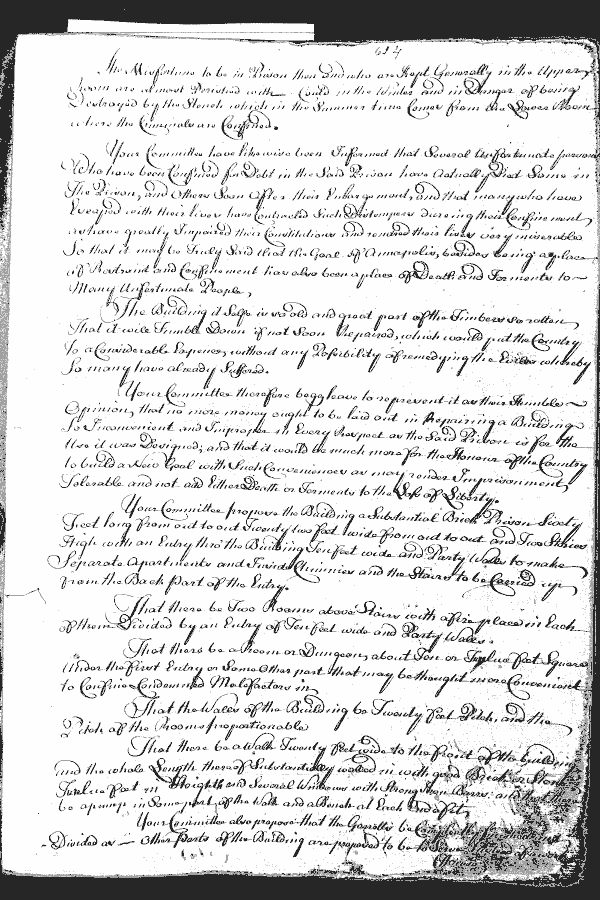 614
The Misfortune to be in Prison then and who are Kept Generally in the Upper
Room are almost Perished with Cold in the Winter and in Danger of being
Destroyed by the Stench which in the Summer time Comes from the Lower Room
where the Criminals are Confined.
Your Committee have likewise been Informed that Several Unfortunate persons
Who have been Confined for Debt in the Said Prison have Actually Died Some in
The Prison, and Others Soon After their Enlargement, and that many who have
Escaped with their lives have Contracted Such Distempers dureing their Confinement,
as have greatly Impaired their Constitutions and rendred their lives very miserable
So that it may be Truly Said that the Goal of Annapolis, besides being a place
of Restraint and Confinement has also been a place of Death and Torments to
Many Unfortunate People,
The Building it Selfe is so old and great part of the Timbers so rotten,
That it will Tumble Down if not Soon Repaired, which would put the Country
To a Considerable Expence, without any Possibility of remedying the Evills whereby
So many have already Suffered.
Your Committee therefore begg leave to represent it as their Humble
Opinion, that no more money ought to be laid out in Repairing a Building
So Inconvenient and Improper in Every Respect as the Said Prison is for the
Use it was Designed; and that it would be much more for the Honour of the Country
to build a New Goal with Such Conveniences as may render Imprisonment
Tolerable and not add Either Death or Torments to the Loss of Liberty.
Your Committee propose the Building a Substantial Brick Prison Sixty
Feet long from out to out Twenty two feet wide from out to out and Two Stories
High with an Entry thro' the Building Ten feet wide and Party Walls to make
Separate Apartments and Inside Chimnies and the Stairs to be Carried up
from the Back part of the Entry.
That there be Two Rooms above Stairs with a fire place in Each
of them Divided by an Entry of Ten feet wide and Party Walls.
That there be a Room or Dungeon, about Ten or Twelve feet Square
Under the First Entry or Some Other part that may be thought more Convenient
to Confine Condemned Malefactors in
That the Walls of the Building be Twenty feet Pitch, and the
Pitch of the Rooms proportionable
That there be a Walk Twenty feet wide to the front of the building
and the whole Length thereof Substantially walled in with good Brick or Stone
Twelve feet in Heighth and Several Windows with Strong Iron Barrs and that there
be a pump in Some part of the Walk and a Bench at Each End of it,
Your Committee also propose that the Garretts be
Divided as other parts of the Building are proposed to be to Serve